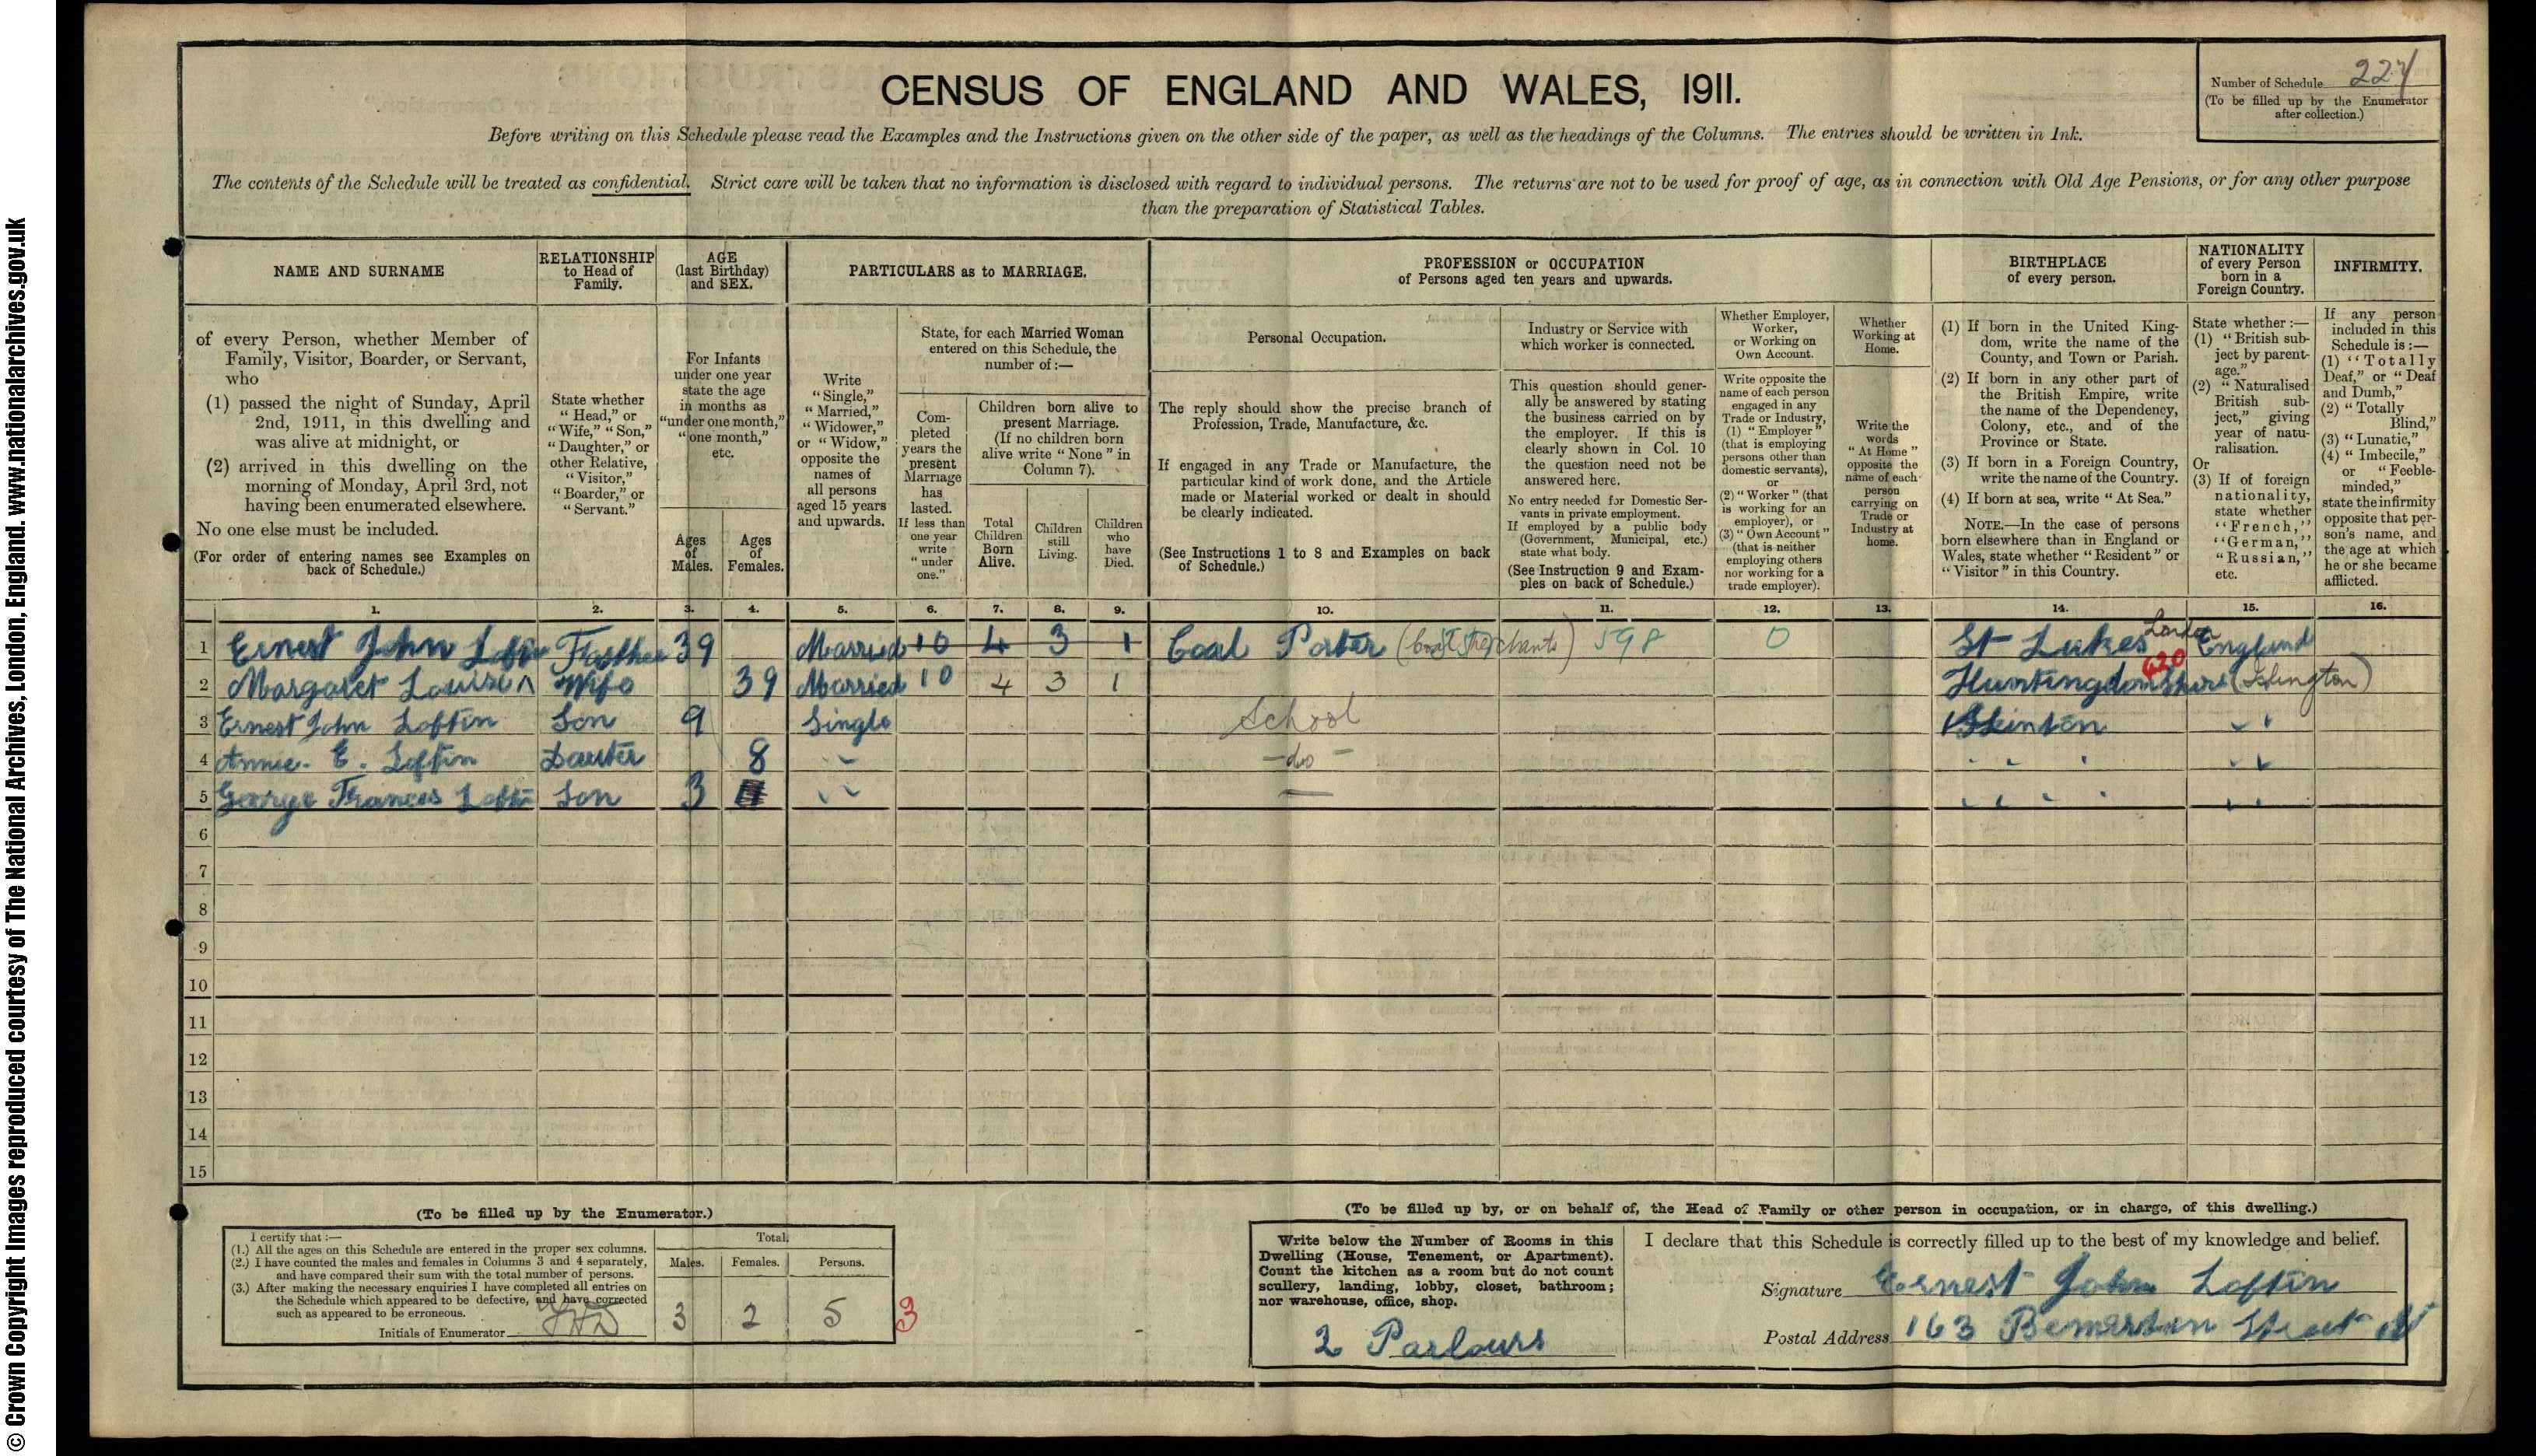 CENSUS OF ENGLAND AND WALES, 1911.
Number of Schedule 224
(To be filled up by the Enumerator
after collection.)
Before writing on this Schedule please read the Examples and the Instructions given on the other side of the paper, as well as the headings of the Columns. The entries should be written in Ink.
The contents of the Schedule will be treated as confidential. Strict care will be taken that no information is disclosed with regard to individual persons. The returns are not to be used for proof of age, as in connection with Old Age Pensions, or for any other purpose
than the preparation of Statistical Tables.
NAME AND SURNAME
of every Person, whether Member of
Family, Visitor, Boarder, or Servant,
who
(1) passed the night of Sunday, April
2nd, 1911, in this dwelling and
was alive at midnight, or
(2) arrived in this dwelling on the
morning of Monday, April 3rd, not
having been enumerated elsewhere.
No one else must be included.
(For order of entering names see Examples on
back of Schedule.)
RELATIONSHIP
to Head of
Family.
State whether
"Head," or
"Wife," "Son,"
"Daughter," or
other Relative,
"Visitor,"
"Boarder," or
"Servant."
AGE
(last Birthday)
and SEX.
For Infants
under one year
state the age
in months as
"under one month,"
"one month,"
etc.
Ages
of
Males.
Ages
of
Females.
PARTICULARS as to MARRIAGE.
Write
"Single,"
"Married,"
"Widower,"
or "Widow,"
opposite the
names of
all persons
aged 15 years
and upwards.
State, for each Married Woman
entered on this Schedule, the
number of :—
Com-
pleted
years the
present
Marriage
has
lasted.
If less than
one year
write
"under
one."
Children born alive to
present Marriage.
(If no children born
alive write "None" in
Column 7).
Total
Children
Born
Alive.
Children
still
Living.
Children
who
have
Died.
PROFESSION or OCCUPATION
of Persons aged ten years and upwards.
Personal Occupation.
The reply should show the precise branch of
Profession, Trade, Manufacture, &c.
If engaged in any Trade or Manufacture, the
particular kind of work done, and the Article
made or Material worked or dealt in should
be clearly indicated.
(See Instructions 1 to 8 and Examples on back
of Schedule.)
Industry or Service with
which worker is connected.
This question should gener-
ally be answered by stating
the business carried on by
the employer. If this is
clearly shown in Col. 10
the question need not be
answered here.
No entry needed for Domestic Ser-
vants in private employment.
If employed by a public body
(Government, Municipal, etc.)
state what body.
(See Instruction 9 and Exam-
ples on back of Schedule.)
Whether Employer,
Worker,
or Working on
Own Account.
Write opposite the
name of each person
engaged in any
Trade or Industry,
(1) "Employer"
(that is employing
persons other than
domestic servants),
or
(2) "Worker" (that
is working for an
employer), or
(3) "Own Account"
(that is neither
employing others
nor working for a
trade employer).
Whether
Working at
Home.
Write the
words
"At Home"
opposite the
name of each
person
carrying on
Trade or
Industry at
home.
BIRTHPLACE
of every person.
(1) If born in the United King-
dom, write the name of the
County, and Town or Parish.
(2) If born in any other part of
the British Empire, write
the name of the Dependency,
Colony, etc., and of the
Province or State.
(3) If born in a Foreign Country,
write the name of the Country.
(4) If born at sea, write "At Sea."
NOTE.—In the case of persons
born elsewhere than in England or
Wales, state whether "Resident" or
"Visitor" in this Country.
NATIONALITY
of every Person
born in a
Foreign Country.
State whether :—
(1) "British sub-
ject by parent-
age."
(2) "Naturalised
British sub-
ject," giving
year of natu-
ralisation.
Or
(3) If of foreign
nationality,
state whether
"French,"
"German,"
"Russian,"
etc.
INFIRMITY.
If any person
included in this
Schedule is :—
(1) "Totally
Deaf," or "Deaf
and Dumb,"
(2) "Totally
Blind,"
(3) "Lunatic,"
(4) "Imbecile,"
or "Feeble-
minded,"
state the infirmity
opposite that per-
son's name, and
the age at which
he or she became
afflicted.
1. 2. 3. 4. 5. 6. 7. 8. 9. 10. 11. 12. 13. 14. 15. 16.
1 Ernest John Loftin Father 39 Married 10 4 3 1 Coal Porter (Coal Merchants) 598 0 St Lukes London England
2 Margaret Louisa Wife 39 Married 10 4 3 1 Huntingdonshire 420 (Islington)
3 Ernest John Loftin Son 9 Single School
4 Annie. E. Loftin Dauter 8 " — do —
5 George Frances Loftin Son 3 " —
6
7
8
9
10
11
12
13
14
15
(To be filled up by the Enumerator.)
I certify that :—
(1.) All the ages on this Schedule are entered in the proper sex columns.
(2.) I have counted the males and females in Columns 3 and 4 separately,
and have compared their sum with the total number of persons.
(3.) After making the necessary enquiries I have completed all entries on
the Schedule which appeared to be defective, and have corrected
such as appeared to be erroneous.
Initials of Enumerator
Total.
Males. Females. Persons.
3 2 5 3
(To be filled up by, or on behalf of, the Head of Family or other person in occupation, or in charge, of this dwelling.)
Write below the Number of Rooms in this
Dwelling (House, Tenement, or Apartment).
Count the kitchen as a room but do not count
scullery, landing, lobby, closet, bathroom;
nor warehouse, office, shop.
2 Parlours
I declare that this Schedule is correctly filled up to the best of my knowledge and belief.
Signature Ernest John Loftin
Postal Address 163 Bemerton Street N
© Crown Copyright Images reproduced courtesy of The National Archives, London, England. www.nationalarchives.gov.uk